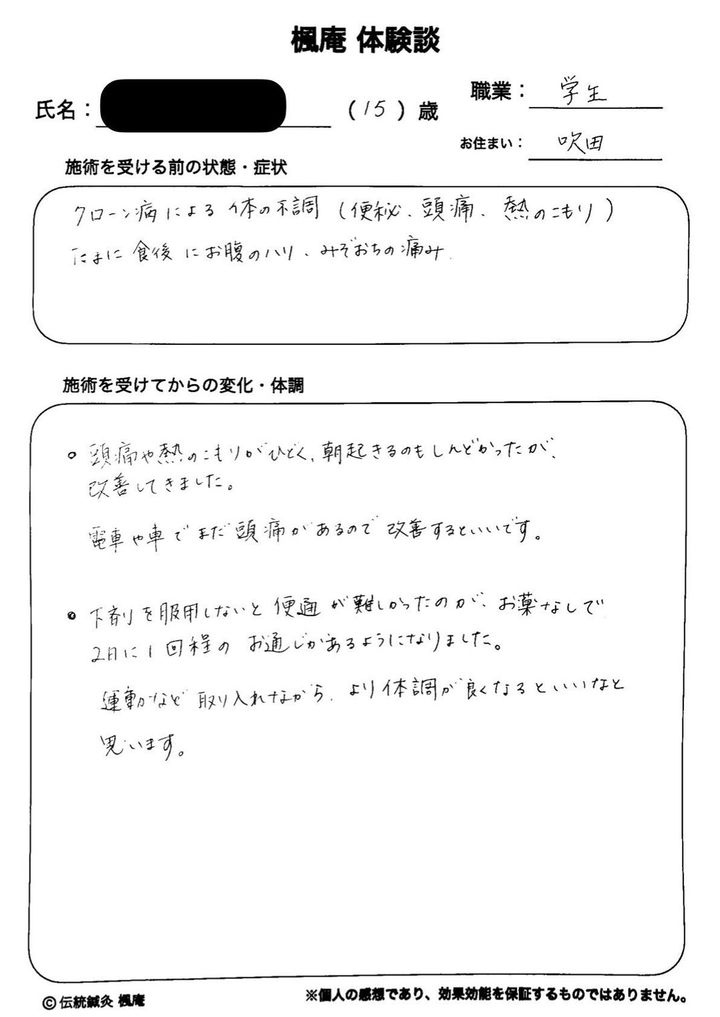 楓庵 体験談
氏名： （ 15 ）歳
職業： 学生
お住まい： 吹田
施術を受ける前の状態・症状
クローン病による体の不調（便秘、頭痛、熱のこもり）
たまに食後にお腹のハリ、みぞおちの痛み.
施術を受けてからの変化・体調
○ 頭痛や熱のこもりがひどく、朝起きるのもしんどかったが、
改善してきました。
電車や車でまだ頭痛があるので改善するといいです。
○ 下剤を服用しないと便通が難しかったのが、お薬なしで
2日に1回程のお通じがあるようになりました。
運動など取り入れながら、より体調が良くなるといいなと
思います。
© 伝統鍼灸 楓庵
※個人の感想であり、効果効能を保証するものではありません。